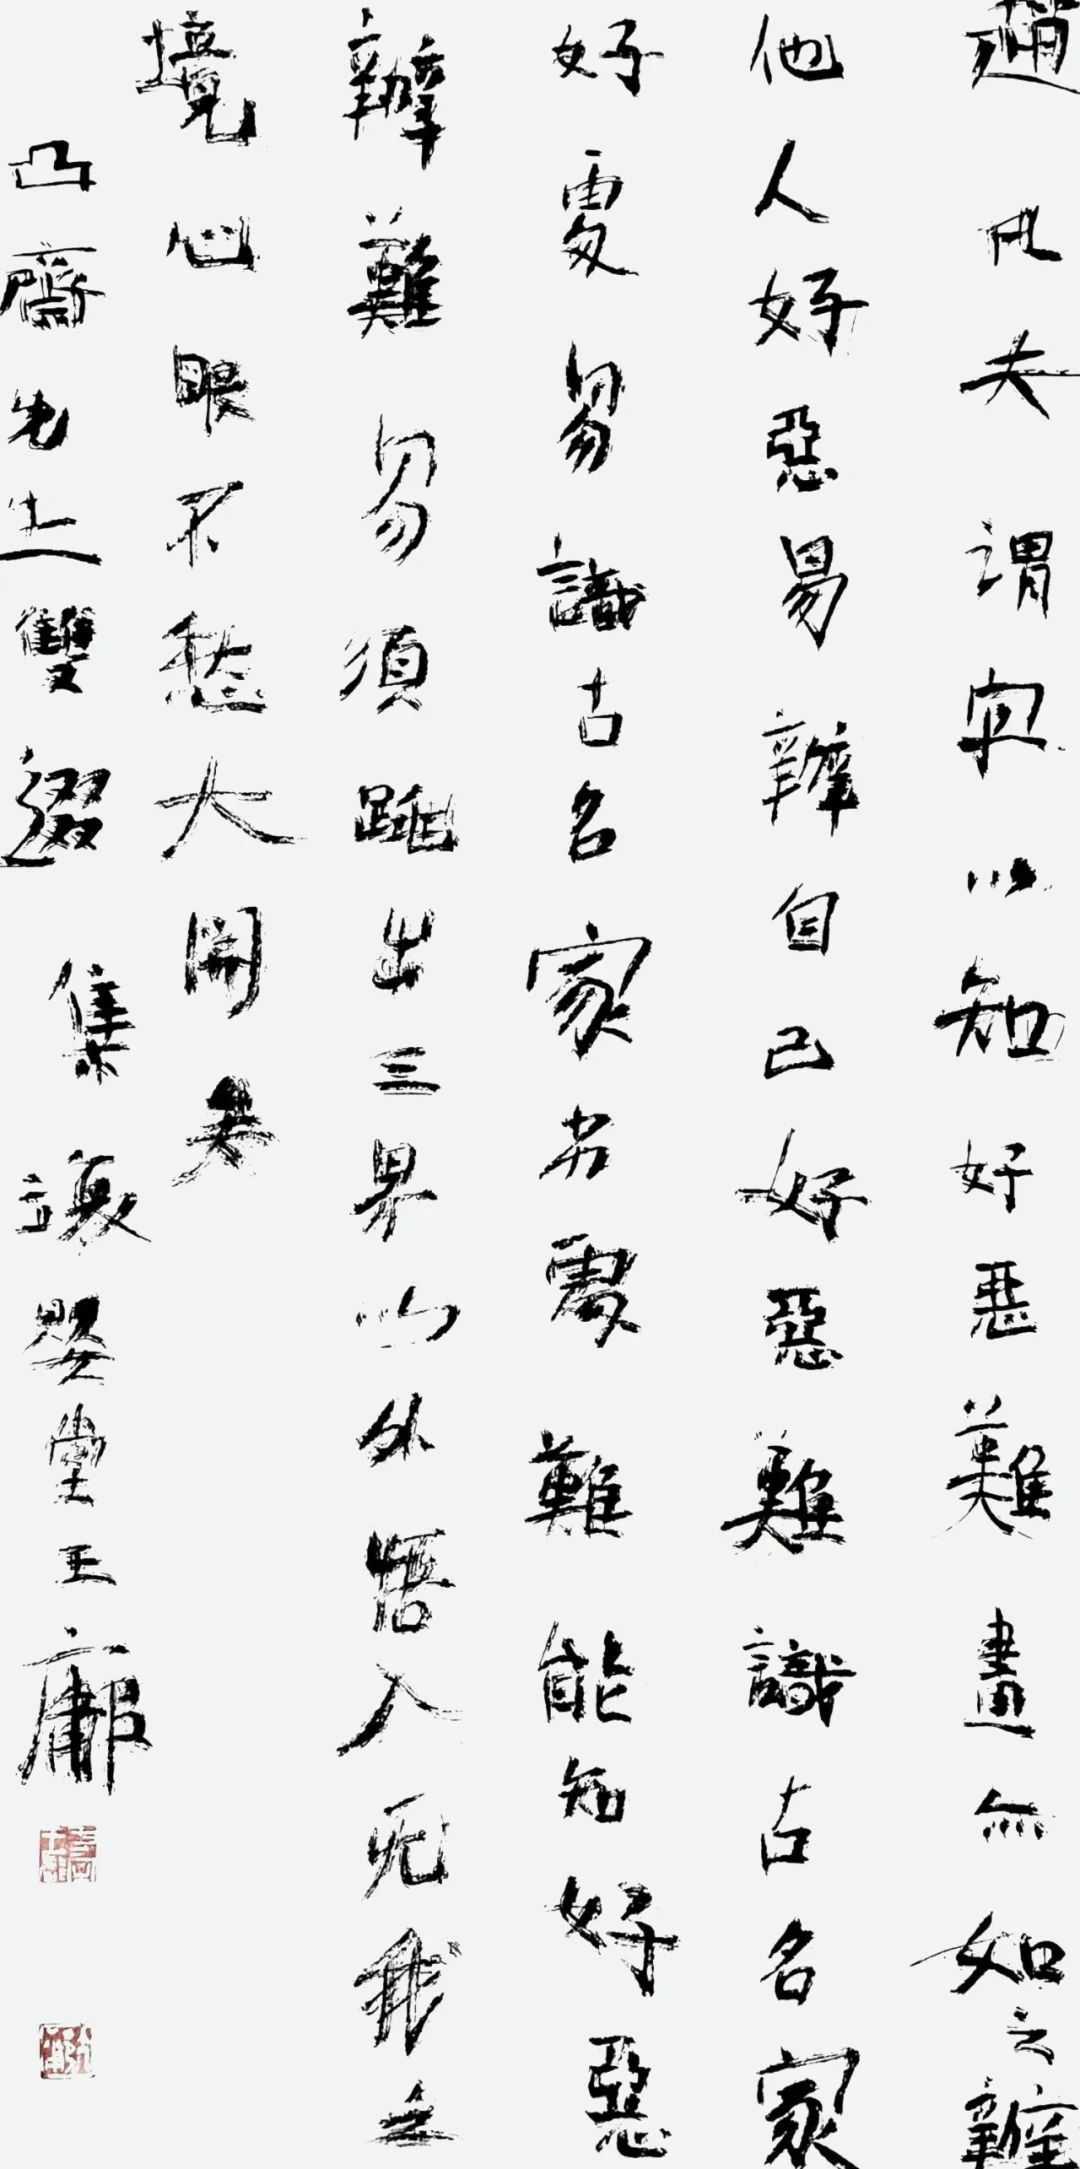 趙凡夫謂字以知好惡難畫無如之辧
他人好惡易辧自己好惡難識古名家
好處易識古名家劣處難能知好惡
辧難易須跳出三界外悟入无我之
境心眼不愁大開矣
凸齋先生雙 集 嬰堂王鄘